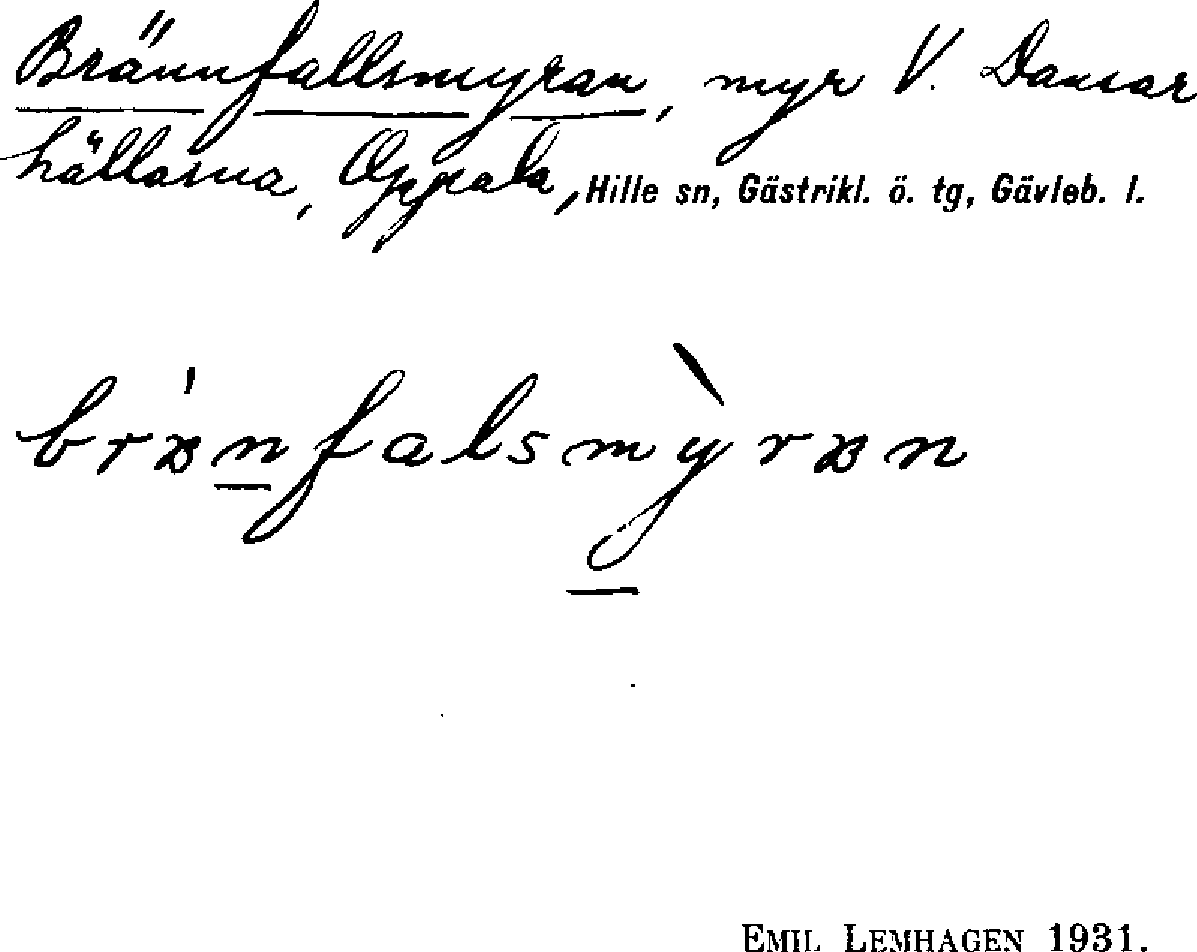 Brännfallsmyran, myr V. Dansar
hällarna, Oppala, Hille sn, Gästrikl. ö. tg, Gävleb. l.
brä̀nfalsmỳran
EMIL LEMHAGEN 1931.